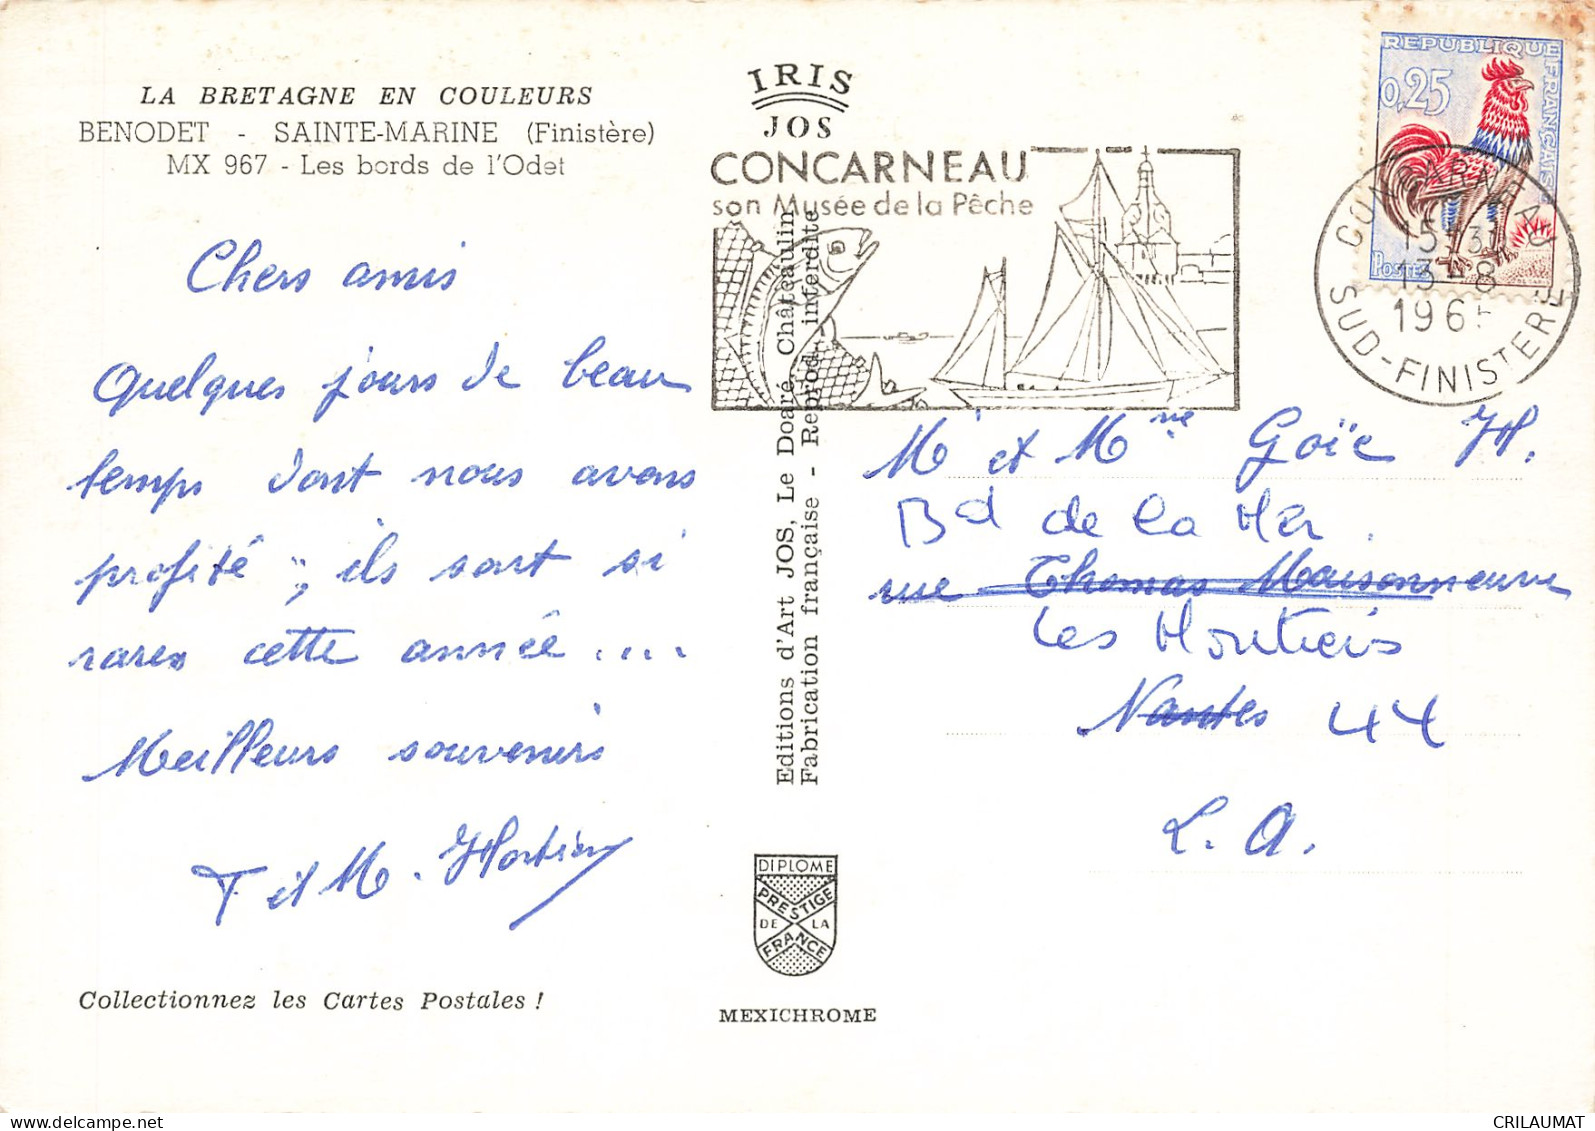 LA BRETAGNE EN COULEURS
BENODET - SAINTE-MARINE (Finistère)
MX 967 - Les bords de l'Odet
Chers amis
Quelques jours de beau
temps dont nous avons
profité ; ils sont si
rares cette année ....
Meilleurs souvenirs
T et M.
Collectionnez les Cartes Postales !
IRIS
JOS
CONCARNEAU
son Musée de la Pêche
Editions d'Art JOS, Le Doaré, Châteaulin
Fabrication française - Reprod. interdite
DIPLOME
PRESTIGE
DE LA
FRANCE
MEXICHROME
REPUBLIQUE FRANÇAISE
0,25
POSTES
CONCARNEAU
13-8
196
SUD-FINISTERE
Mr et Mme Goïc H.
Bd de la Mer.
rue Thomas Maisonneuve
Les Moutiers
Nantes 44
L. A.
CRILAUMAT